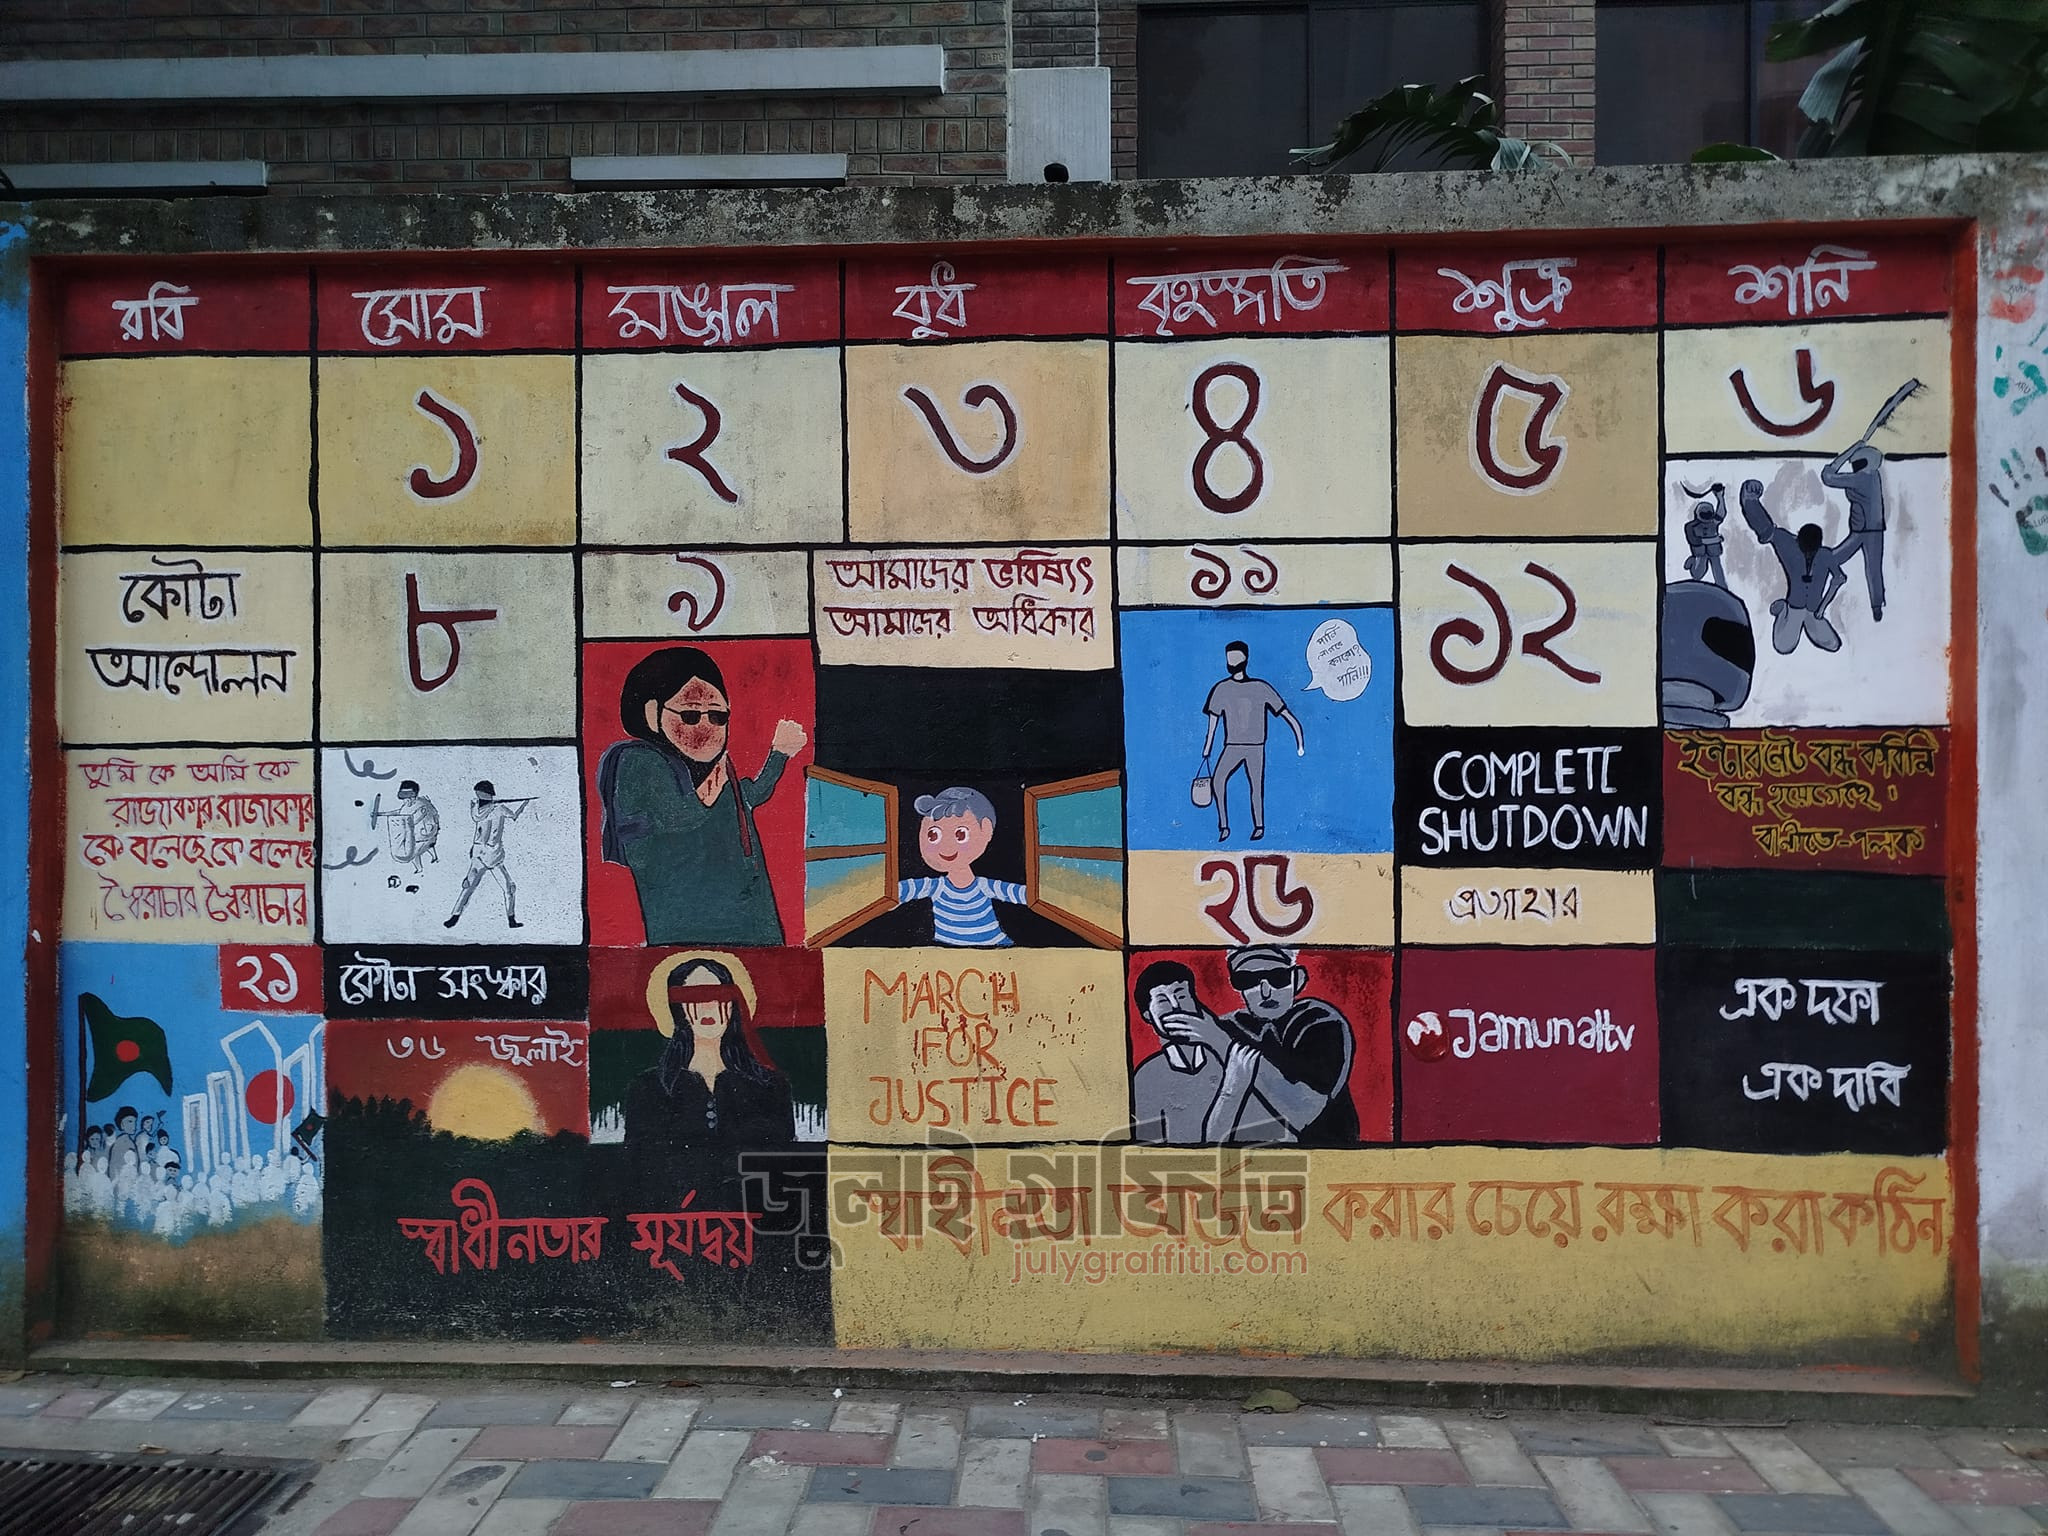 রবি
সোম
মঙ্গল
বুধ
বৃহস্পতি
শুক্র
শনি
১
২
৩
৪
৫
৬
কোটা
আন্দোলন
৮
৯
আমাদের ভবিষ্যৎ
আমাদের অধিকার
১১
পানি
লাগবে
কারো?
পানি!!!
১২
তুমি কে আমি কে
রাজাকার রাজাকার
কে বলেছে কে বলেছে
স্বৈরাচার স্বৈরাচার
COMPLETE
SHUTDOWN
ইন্টারনেট বন্ধ করিনি
বন্ধ হয়েগেছে।
বানীতে-পলক
২৬
প্রত্যাহার
২১
কোটা সংস্কার
৩৬ জুলাই
MARCH
FOR
JUSTICE
Jamunatv
এক দফা
এক দাবি
স্বাধীনতার সূর্যদ্বয়
স্বাধীনতা অর্জন করার চেয়ে রক্ষা করা কঠিন
জুলাই গ্রাফিতি
julygraffiti.com